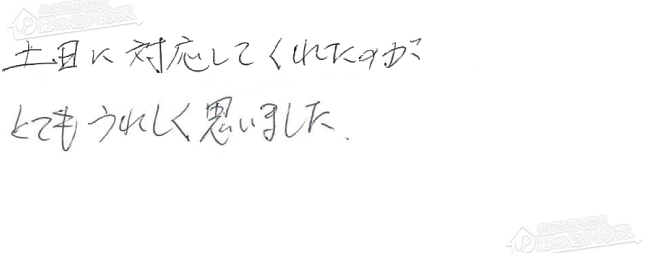 土日に対応してくれたのが
とてもうれしく思いました.